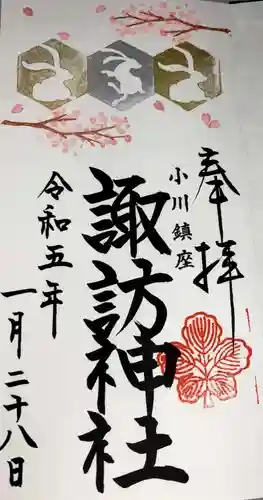 奉拝
小川鎮座
諏訪神社
令和五年
一月二十八日